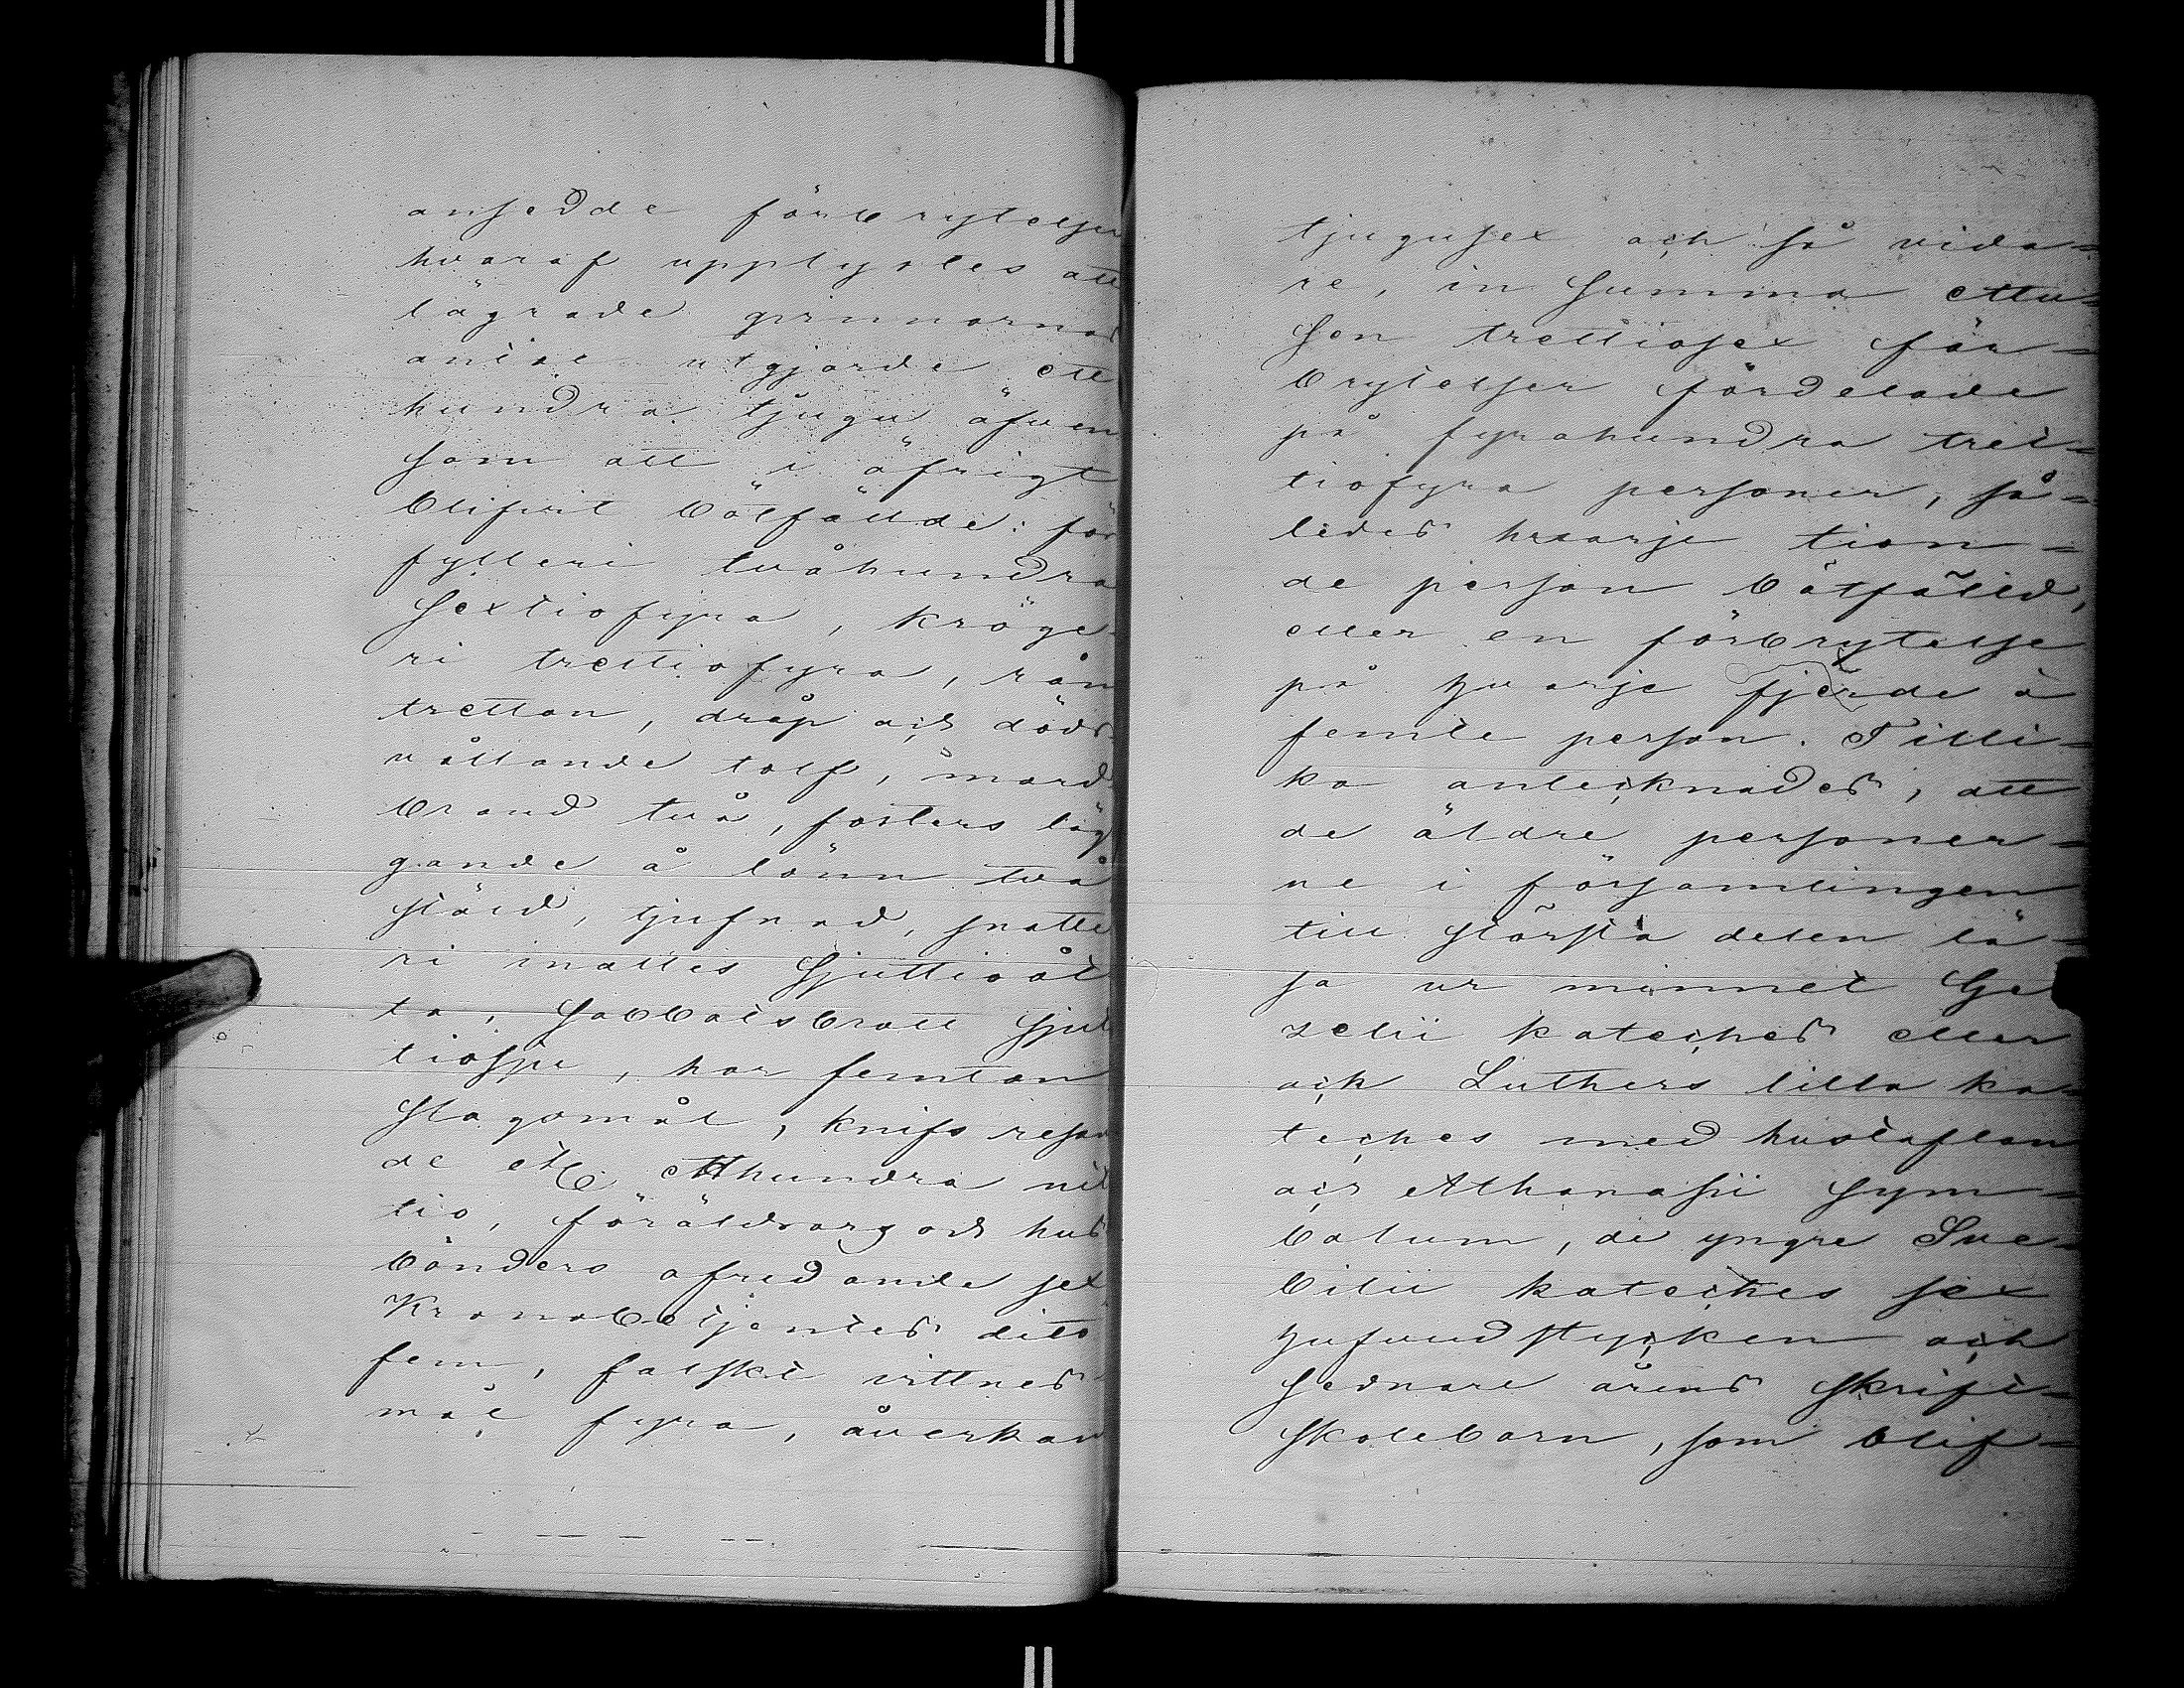 ansedde förbrytelser
hvaraf upplystes att
lägrade qvinnornas
antal utgjorde ett
hundra tjugu äfven
som att i öfrigt
blifvit bötfällde: för
fylleri tvåhundra
sextiofyra, kröge-
ri trettiofyra, rån
tretton, dråp och döds-
vållande tolf, mord
brand två, fosters läg
gande å lönn två
stöld, tjufnad, snatte
ri inalles sjuttioåt
ta, sabbatsbrott sjut
tiosju, hor femton
slagsmål, knifs resan
de etc etthundra nit
tio, föräldrars och hus
bönders ofredande sex
Kronobetjentes dito
fem, falskt vittnes-
mål fyra, åverkan
tjugusex och så vida=
re, in summa ettu=
sen trettiosex för=
brytelser fördelade
på fyrahundra tret=
tiofyra personer, så=
ledes hvarje tion=
de person bötfälld,
eller en förbrytelse
på hvarje fjerde à
femte person. Tilli=
ka antecknades, att
de äldre personer=
ne i församlingen
till största delen lä=
sa ur minnet Ge
zelii kateches eller
och Luthers lilla ka=
teches med hustaflan
och Athanasii sym=
bolum, de yngre Sve=
bilii kateches sex
hufvudstycken och
sednare årens skrift=
skolebarn, som blif=